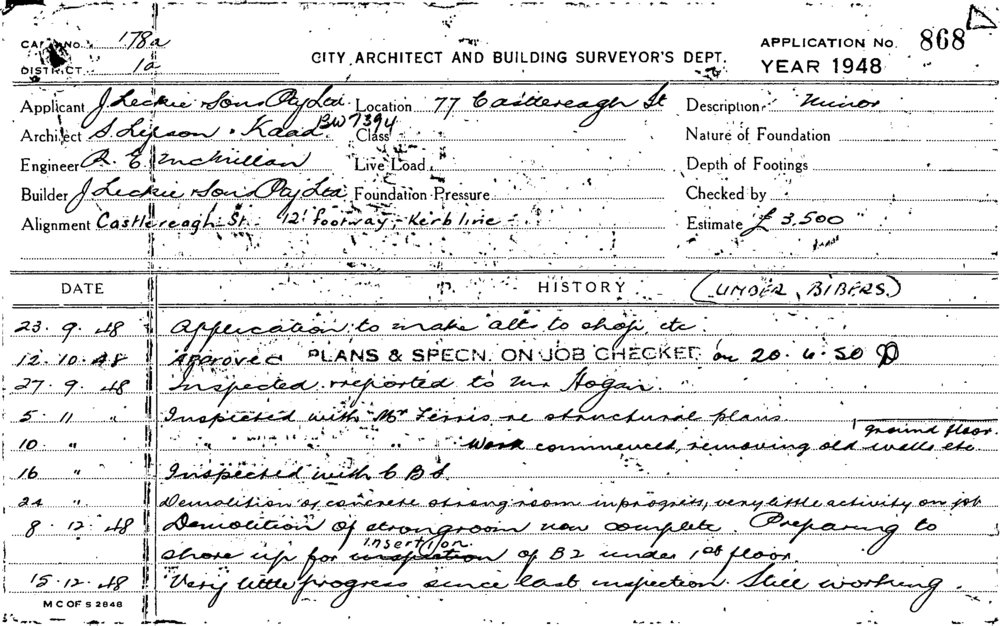 CARD No. 178a
DISTRICT 1a
CITY ARCHITECT AND BUILDING SURVEYOR'S DEPT.
APPLICATION No. 868
YEAR 1948
Applicant J Leckie & Sons Pty Ltd Location 77 Castlereagh St Description Minor
BW 7394
Architect S. Lipson & Kaad Class Nature of Foundation
Engineer R. E. McMillan Live Load Depth of Footings
Builder J Leckie & Sons Pty Ltd Foundation Pressure Checked by
Alignment Castlereagh St. 12' footway - Kerb line Estimate £ 3,500
DATE HISTORY (UNDER BIBERS.)
23. 9. 48 Application to make alts to shop, etc.
12. 10. 48 Approved PLANS & SPECN. ON JOB CHECKED on 20. 4. 50
27. 9. 48 Inspected & reported to Mr Hogan.
5. 11 " Inspected with Mr Ferris re structural plans
ground floor.
10. " " " " " Work commenced, removing old walls etc
16 " Inspected with C.B.S.
24 " Demolition of concrete strong room in progress, very little activity on job
8. 12. 48 Demolition of strongroom now complete. Preparing to
insertion
shore up for inspection of B2 under 1st floor
15. 12. 48 Very little progress since last inspection. Still working.
M C OF S 2848